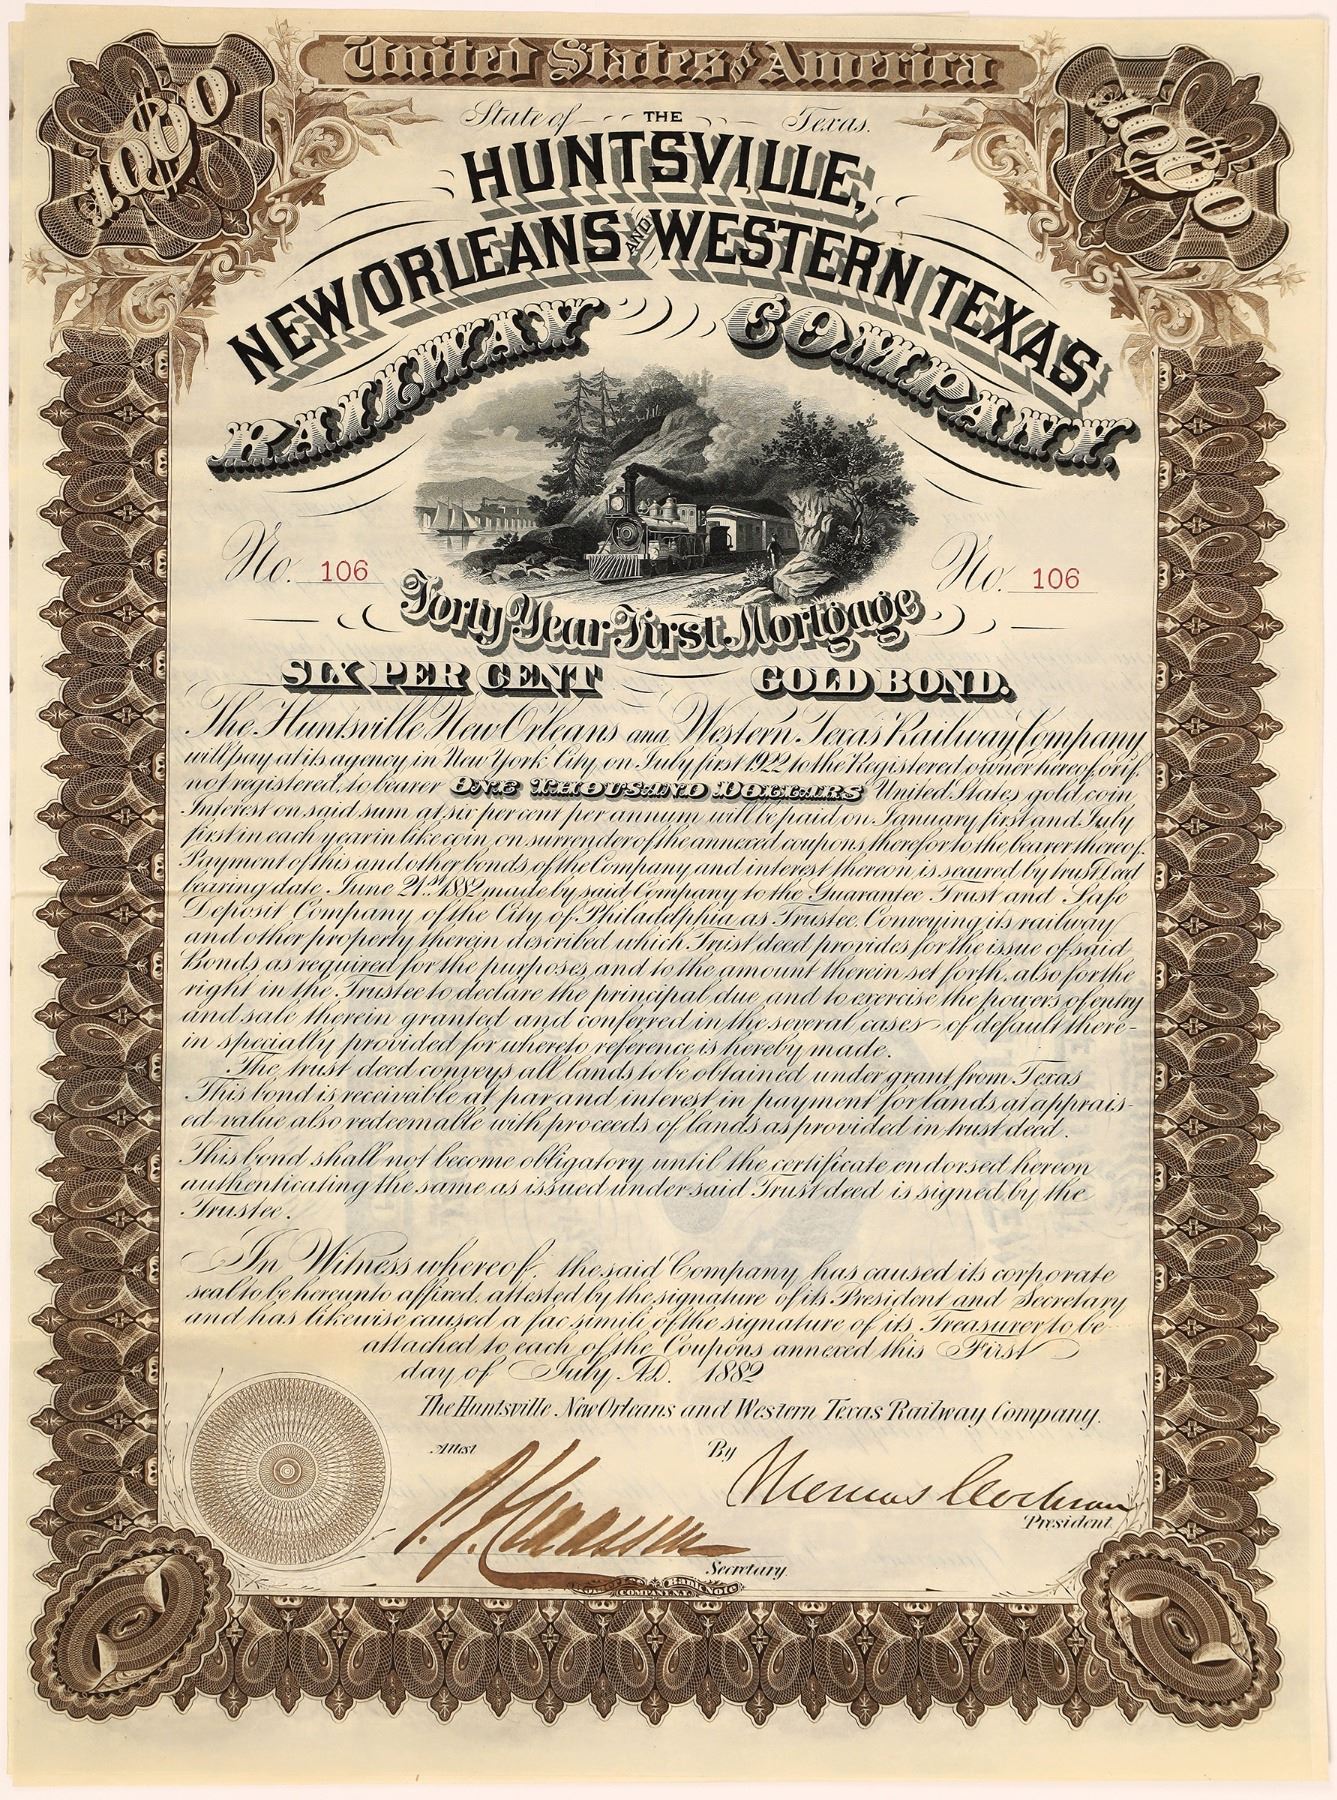 United States of America
$1000
$1000
State of Texas.
THE
HUNTSVILLE,
NEW ORLEANS AND WESTERN TEXAS
RAILWAY COMPANY,
No. 106
No. 106
Forty Year First Mortgage
SIX PER CENT GOLD BOND.
The Huntsville New Orleans and Western Texas Railway Company
will pay at its agency in New York City, on July first 1922 to the Registered owner hereof, or if
not registered, to bearer ONE THOUSAND DOLLARS United States gold coin.
Interest on said sum at six per cent per annum will be paid on January first and July
first in each year in like coin, on surrender of the annexed coupons therefor to the bearer thereof.
Payment of this and other bonds of the Company and interest thereon is secured by trust Deed
bearing date June 21st 1882, made by said Company to the Guarantee Trust and Safe
Deposit Company of the City of Philadelphia as Trustee. Conveying its railway
and other property therein described which Trust deed provides for the issue of said
Bonds as required for the purposes and to the amount therein set forth, also for the
right in the Trustee to declare the principal due, and to exercise the powers of entry
and sale therein granted and conferred in the several cases of default there-
in specially provided for whereto reference is hereby made.
The trust deed conveys all lands to be obtained under grant from Texas
This bond is receivable at par and interest in payment for lands at apprais-
ed value also redeemable with proceeds of lands as provided in trust deed.
This bond shall not become obligatory until the certificate endorsed hereon
authenticating the same as issued under said Trust deed is signed by the
Trustee.
In Witness whereof, the said Company has caused its corporate
seal to be hereunto affixed, attested by the signature of its President and Secretary
and has likewise caused a fac simili of the signature of its Treasurer to be
attached to each of the Coupons annexed this First
day of July A.D. 1882
The Huntsville New Orleans and Western Texas Railway Company.
Attest
By
Thomas Cochran
President
Secretary.